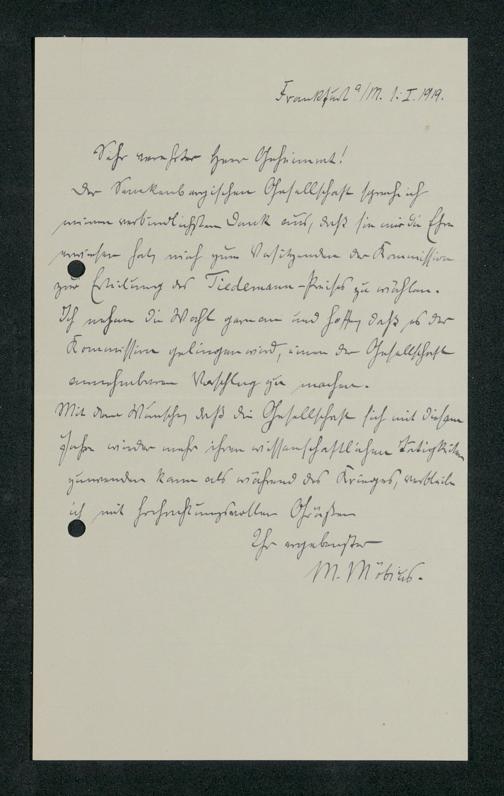 Frankfurt a/M. 1. I. 1919.
Sehr verehrter Herr Geheimrat!
Der Senckenbergischen Gesellschaft spreche ich
meinen verbindlichsten Dank aus, daß sie mir die Ehre
erwiesen hat, mich zum Vorsitzenden der Kommission
zur Erteilung des Tiedemann-Preises zu wählen.
Ich nehme die Wahl gern an und hoffe, daß es der
Kommission gelingen wird, einen der Gesellschaft
annehmbaren Vorschlag zu machen.
Mit dem Wunsche, daß die Gesellschaft sich mit diesem
Jahre wieder mehr ihren wissenschaftlichen Tätigkeiten
zuwenden kann als während des Krieges, verbleibe
ich mit hochachtungsvollen Grüßen
Ihr ergebenster
M. Möbius.